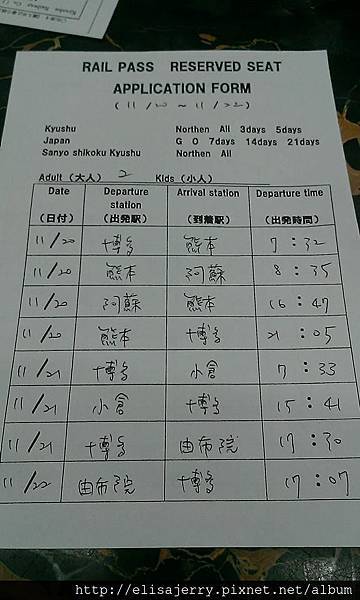 RAIL PASS RESERVED SEAT
APPLICATION FORM
( 11 / 20 ~ 11 / 22 )
Kyushu Northen All 3days 5days
Japan G O 7days 14days 21days
Sanyo shikoku Kyushu Northen All
Adult (大人) 2 Kids (小人)
Date Departure station Arrival station Departure time
(日付) (出発駅) (到着駅) (出発時間)
11/20 博多 熊本 7:32
11/20 熊本 阿蘇 8:35
11/20 阿蘇 熊本 16:47
11/20 熊本 博多 21:05
11/21 博多 小倉 7:33
11/21 小倉 博多 15:41
11/21 博多 由布院 17:30
11/22 由布院 博多 17:07
http://elisajerry.pixnet.net/album